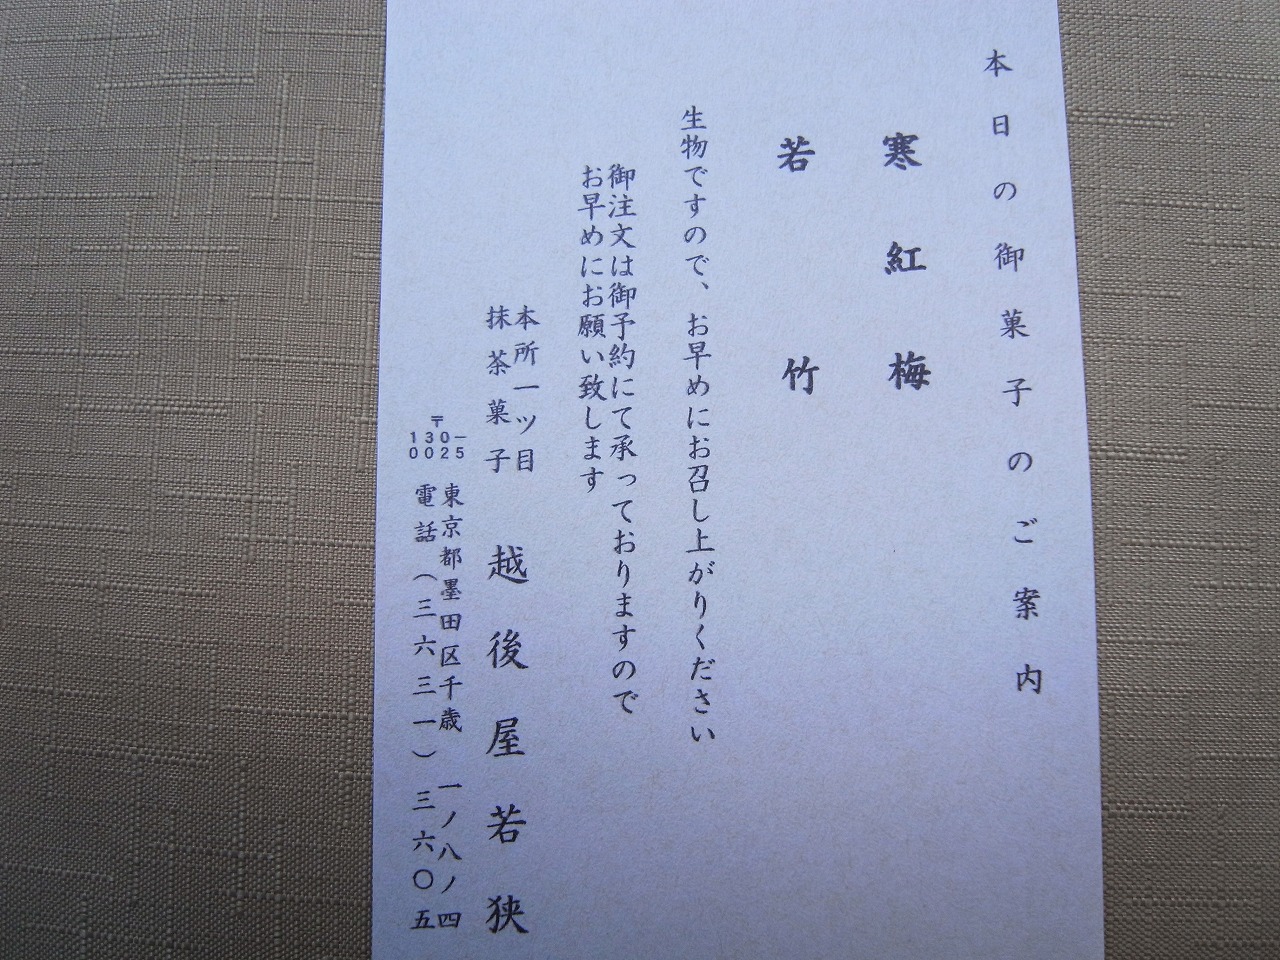 本日の御菓子のご案内
寒紅梅
若竹
生物ですので、お早めにお召し上がりください
御注文は御予約にて承っておりますので
お早めにお願い致します
本所一ツ目
抹茶菓子
越後屋若狭
〒
130-
0025
東京都墨田区千歳 一ノ八ノ四
電話(三六三一)三六〇五